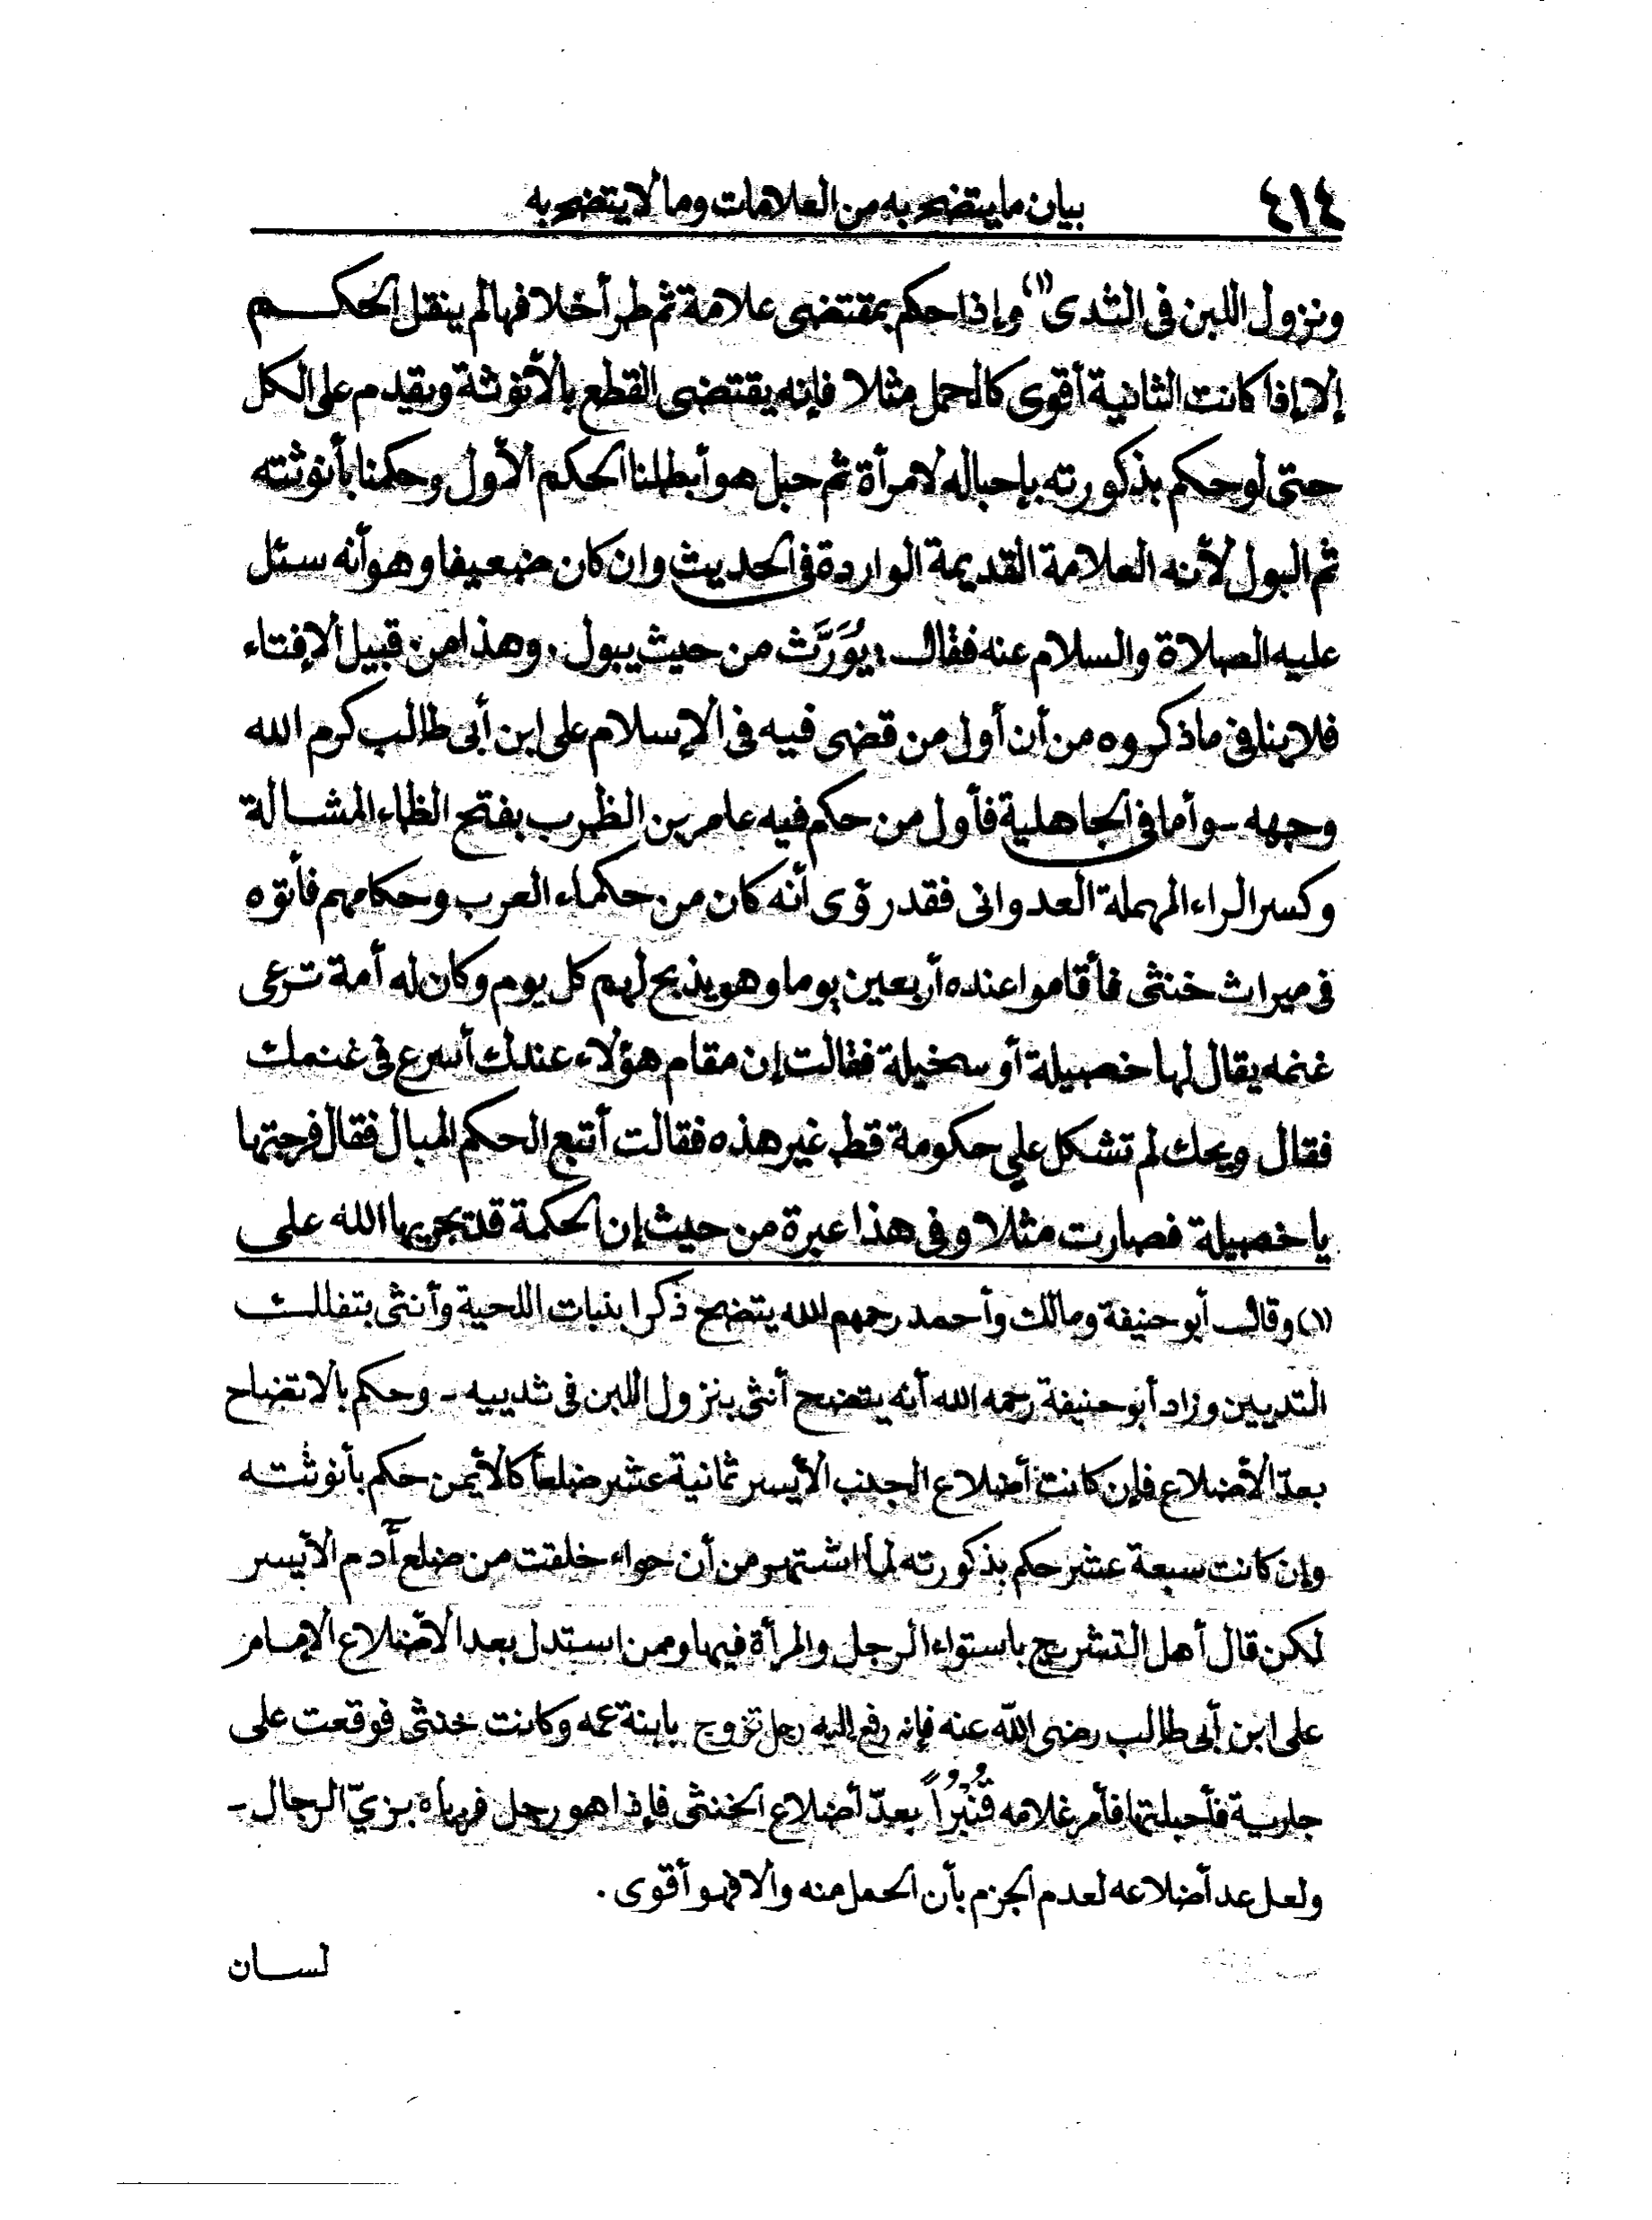 ٤١٤ بيان ما يتضح به من العلامات وما لا يتضح به
ونزول اللبن فى الثدى (١) وإذا حكم بمقتضى علامة ثم طرأ خلافها لم ينقل الحكم
إلا إذا كانت الثانية أقوى كالحمل مثلا فإنه يقتضى القطع بالأنوثة ويقدم على الكل
حتى لو حكم بذكورته بإحباله لامرأة ثم حبل هو أبطلنا الحكم الأول وحكمنا بأنوثته
ثم البول لأنه العلامة القديمة الواردة فى الحديث وان كان ضعيفا وهو أنه سئل
عليه الصلاة والسلام عنه فقال : يُوَرَّث من حيث يبول . وهذا من قبيل الإفتاء
فلا ينافى ما ذكروه من أن أول من قضى فيه فى الإسلام على ابن أبى طالب كرم الله
وجهه - وأما فى الجاهلية فأول من حكم فيه عامر بن الظرب بفتح الظاء المشالة
وكسر الراء المهملة العدوانى فقد رؤى أنه كان من حكماء العرب وحكامهم فأتوه
فى ميراث خنثى فأقاموا عنده أربعين يوما وهو يذبح لهم كل يوم وكان له أمة ترعى
غنمه يقال لها خصيلة أو سخيلة فقالت إن مقام هؤلاء عندك أسرع فى غنمك
فقال ويحك لم تشكل علي حكومة قط غير هذه فقالت أتبع الحكم المبال فقال فرجتها
يا خصيلة فصارت مثلا وفى هذا عبرة من حيث إن الحكمة قد يجريها الله على
(١) وقال أبو حنيفة ومالك وأحمد رحمهم الله يتضح ذكرا بنبات اللحية وأنثى بتفلك
الثديين وزاد أبو حنيفة رحمه الله أنه يتضح أنثى بنزول اللبن فى ثدييه - وحكم بالاتضاح
بعدّ الأضلاع فإن كانت أضلاع الجنب الأيسر ثمانية عشر ضلعاً كالأيمن حكم بأنوثته
وإن كانت سبعة عشر حكم بذكورته لما اشتهر من أن حواء خلقت من ضلع آدم الأيسر
لكن قال أهل التشريح باستواء الرجل والمرأة فيها وممن استدل بعد الأضلاع الإمام
على ابن أبى طالب رضى الله عنه فإنه رفع إليه رجل تزوج بابنة عمه وكانت خنثى فوقعت على
جارية فأحبلتها فأمر غلامه قُنْبُراً بعدّ أضلاع الخنثى فإذا هو رجل فزياه بزيّ الرجال -
ولعل عد أضلاعه لعدم الجزم بأن الحمل منه والا فهو أقوى .
لسان